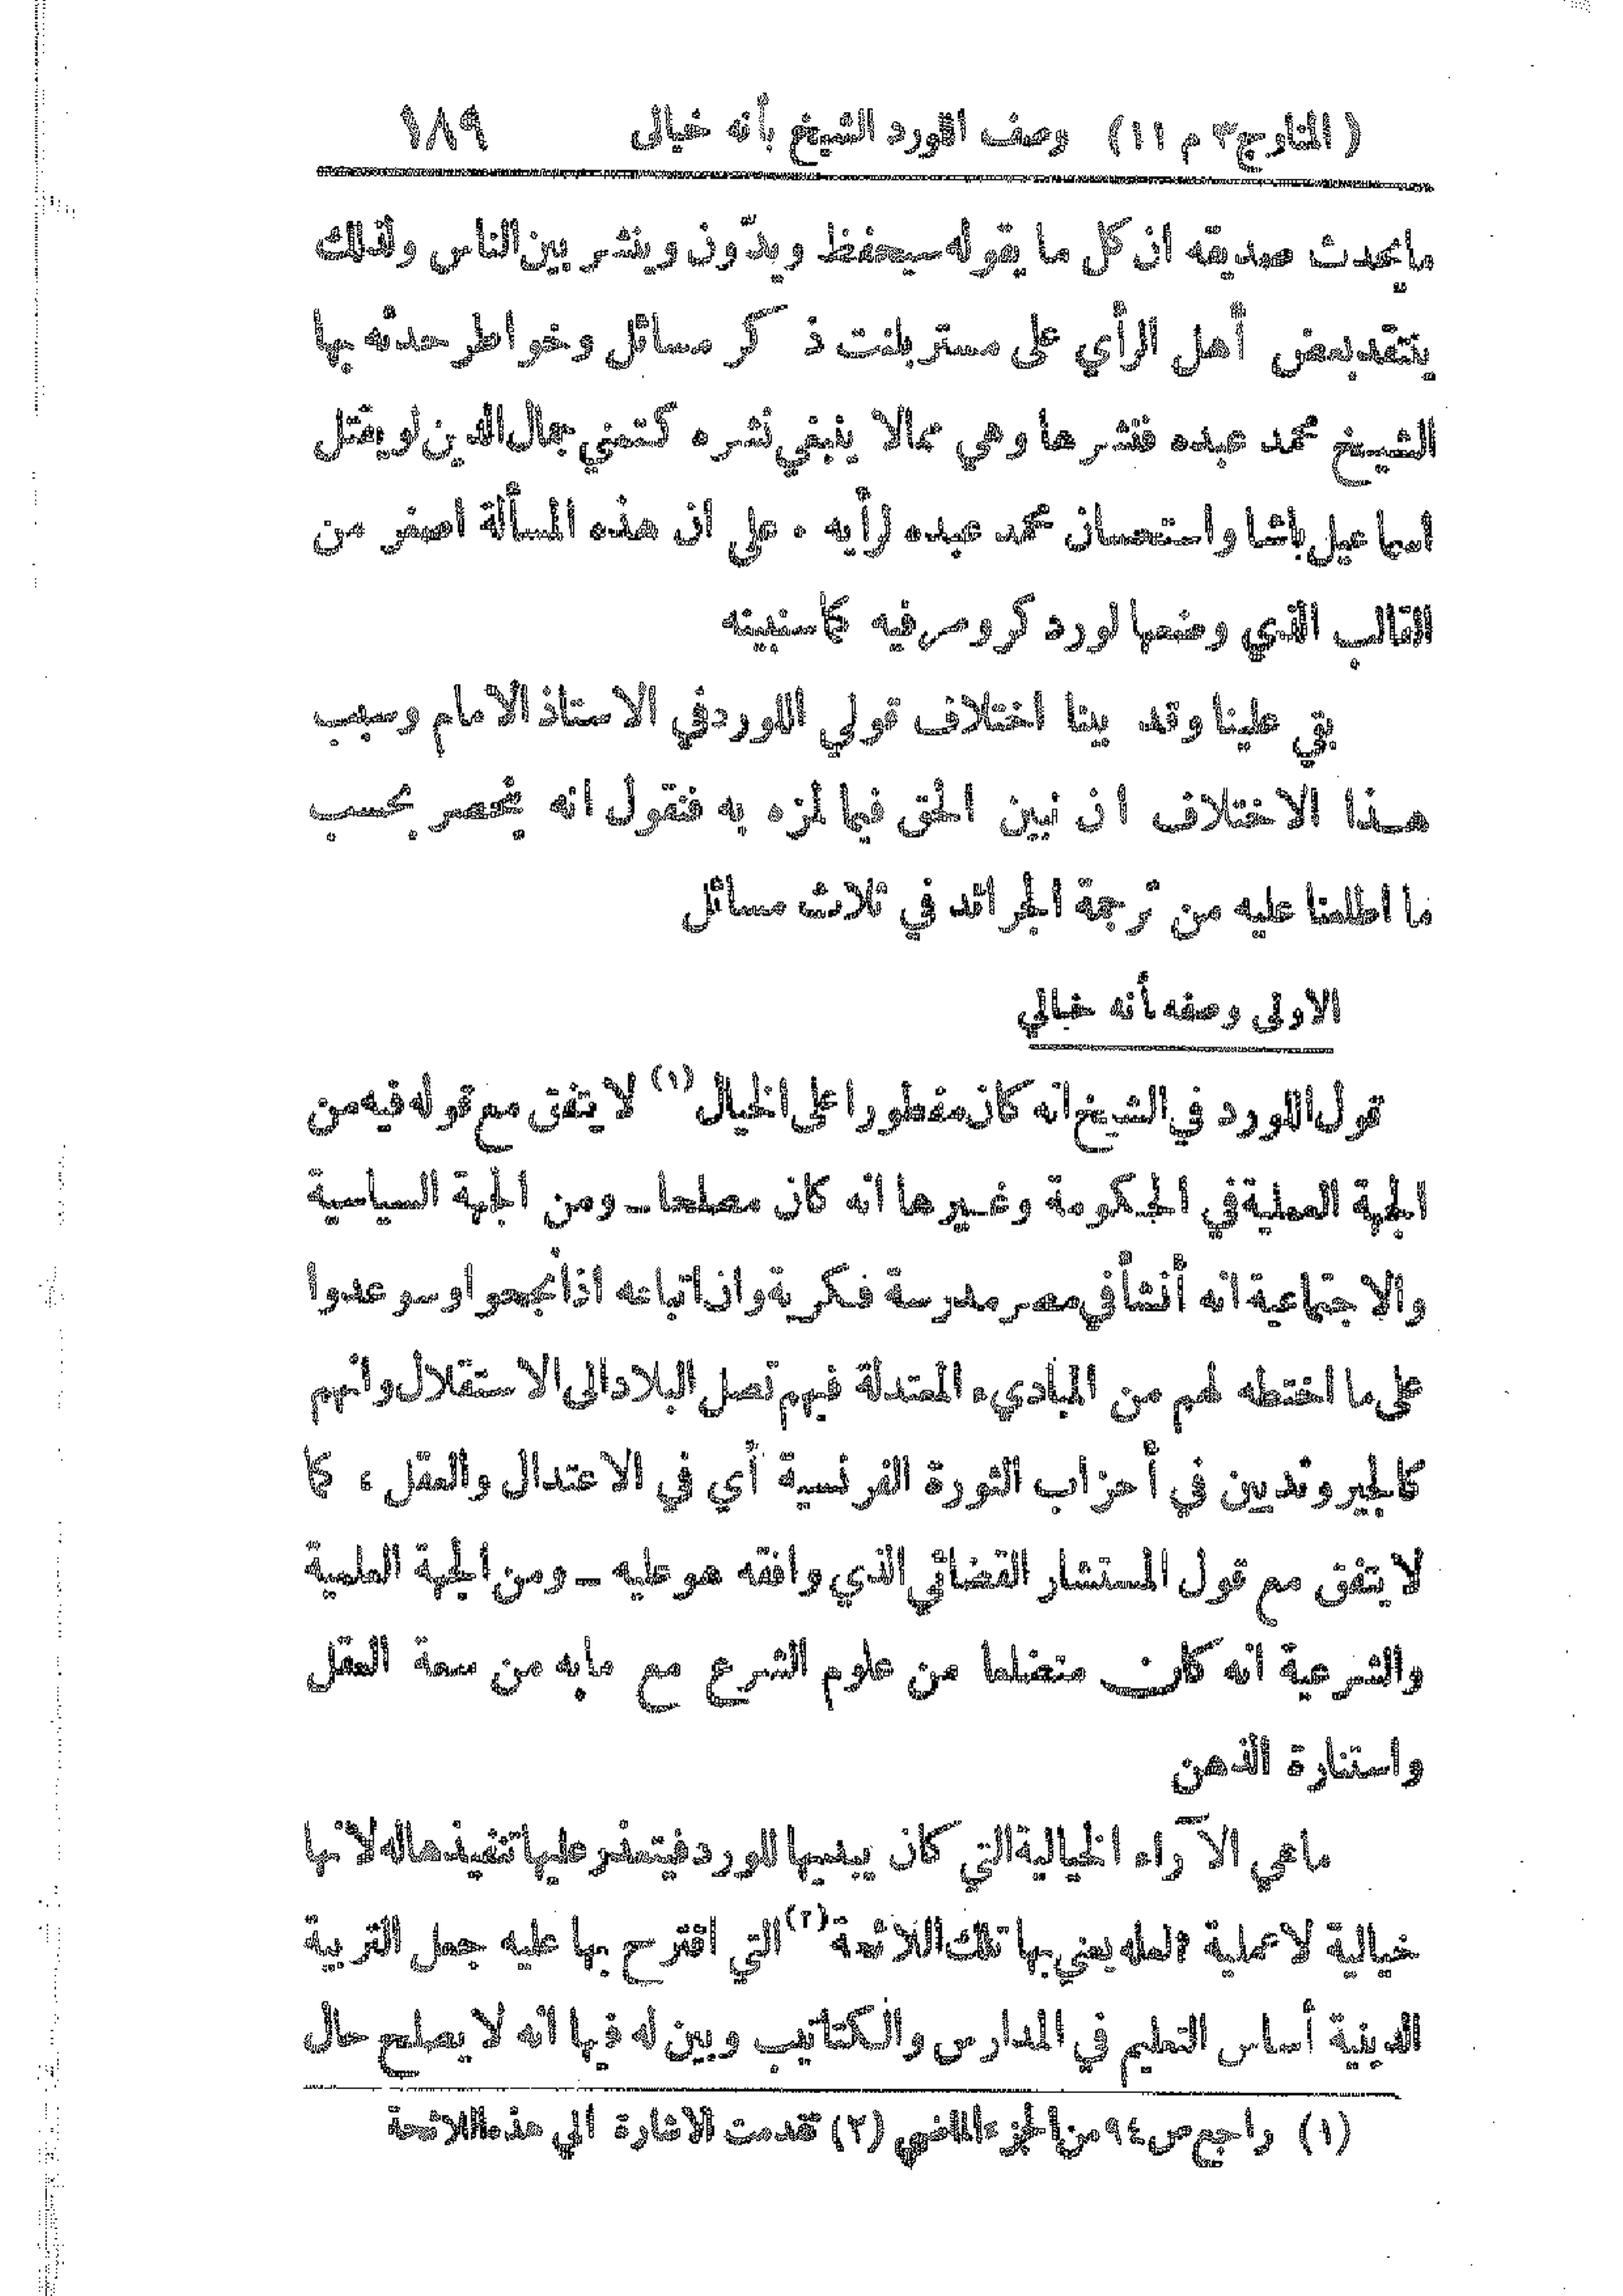 (المنارج٣ م ١١) وصف اللورد الشيخ بأنه خيالى ١٨٩
ما يحدث صديقه ان كل ما يقوله سيحفظ ويدّون وينشر بين الناس ولذلك
ينتقد بعض أهل الرأي على مستر بلنت ذكر مسائل وخواطر حدثه بها
الشيخ محمد عبده فنشرها وهي مما لا ينبغي نشره كتمني جمال الدين لو يقتل
اسماعيل باشا واستحسان محمد عبده لرأيه . على ان هذه المسألة اصغر من
القالب الذي وضعها لورد كرومر فيه كما سنبينه
بقي علينا وقد بينا اختلاف قولي اللورد في الاستاذ الامام وسبب
هذا الاختلاف ان نبين الحق فيما لمزه به فنقول انه ينحصر بحسب
ما اطلعنا عليه من ترجمة الجرائد في ثلاث مسائل
الاولى وصفه بأنه خيالي
قول اللورد في الشيخ انه كان مفطورا على الخيال (١) لا يتفق مع قوله فيه من
الجهة العملية في الحكومة وغيرها انه كان مصلحا ــ ومن الجهة السياسية
والاجتماعية انه أنشأ في مصر مدرسة فكرية وان اتباعه اذا نجحوا وسوعدوا
على ما اختطه لهم من المبادىء المعتدلة فبهم تصل البلاد الى الاستقلال وانهم
كالجيرونديين في أحزاب الثورة الفرنسية أي في الاعتدال والعقل ، كما
لا يتفق مع قول المستشار القضائي الذي وافقه هو عليه ــ ومن الجهة العلمية
والشرعية انه كان متضلعا من علوم الشرع مع ما به من سعة العقل
واستنارة الذهن
ما هي الآراء الخيالية التي كان يبديها للورد فيتعذر عليها تنفيذها له لانها
خيالية لا عملية ؟ لعله يعني بها تلك اللائحة (٢) التي اقترح بها عليه جعل التربية
الدينية أساس التعليم في المدارس والكتاتيب وبين له فيها انه لا يصلح حال
(١) راجع ص ٩٤ من الجزء الماضي (٢) تقدمت الاشارة الي هذه اللائحة